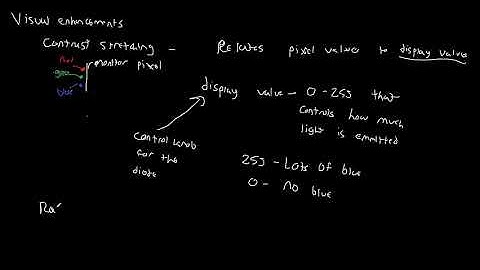 Visual enhancements
Contrast stretching - Relates pixel values to display value
Red
monitor pixel
green
blue
display value - 0-255 that
controls how much
light is emmitted
control knob
for the
diode
255 - Lots of blue
0 - no blue
Ra